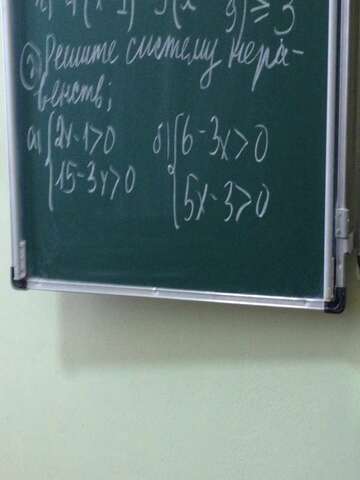 ② Решите систему нера-
венств;
а) { 2x-1>0 б) { 6-3x>0
15-3x>0 5x-3>0